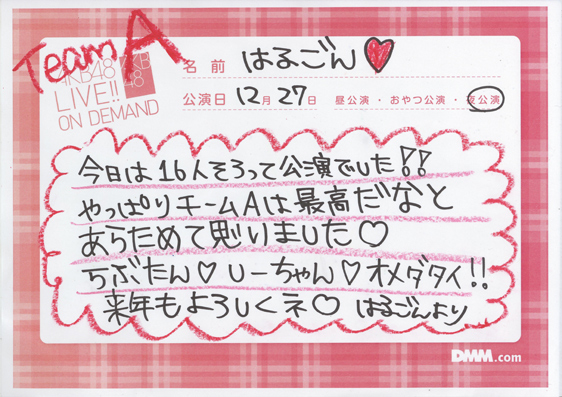 Team A
AKB48
LIVE!!
ON DEMAND
AKB
48
名前 はるごん♥
公演日 12月27日 昼公演・おやつ公演・夜公演
今日は16人そろって公演でいた!!
やっぱりチームAは最高だなと
あらためて思りました♡
らぶたん♡しーちゃん♡オメダタイ!!
来年もよろしくネ♡ はるごんより
DMM.com